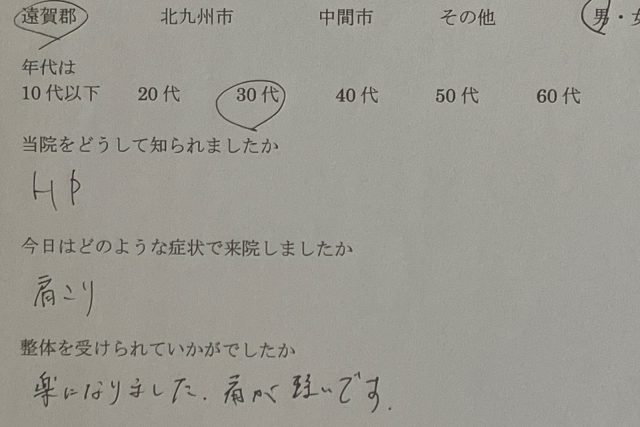 遠賀郡 北九州市 中間市 その他 男・女
年代は
10代以下 20代 30代 40代 50代 60代
当院をどうして知られましたか
HP
今日はどのような症状で来院しましたか
肩こり
整体を受けられていかがでしたか
楽になりました。肩が軽いです。